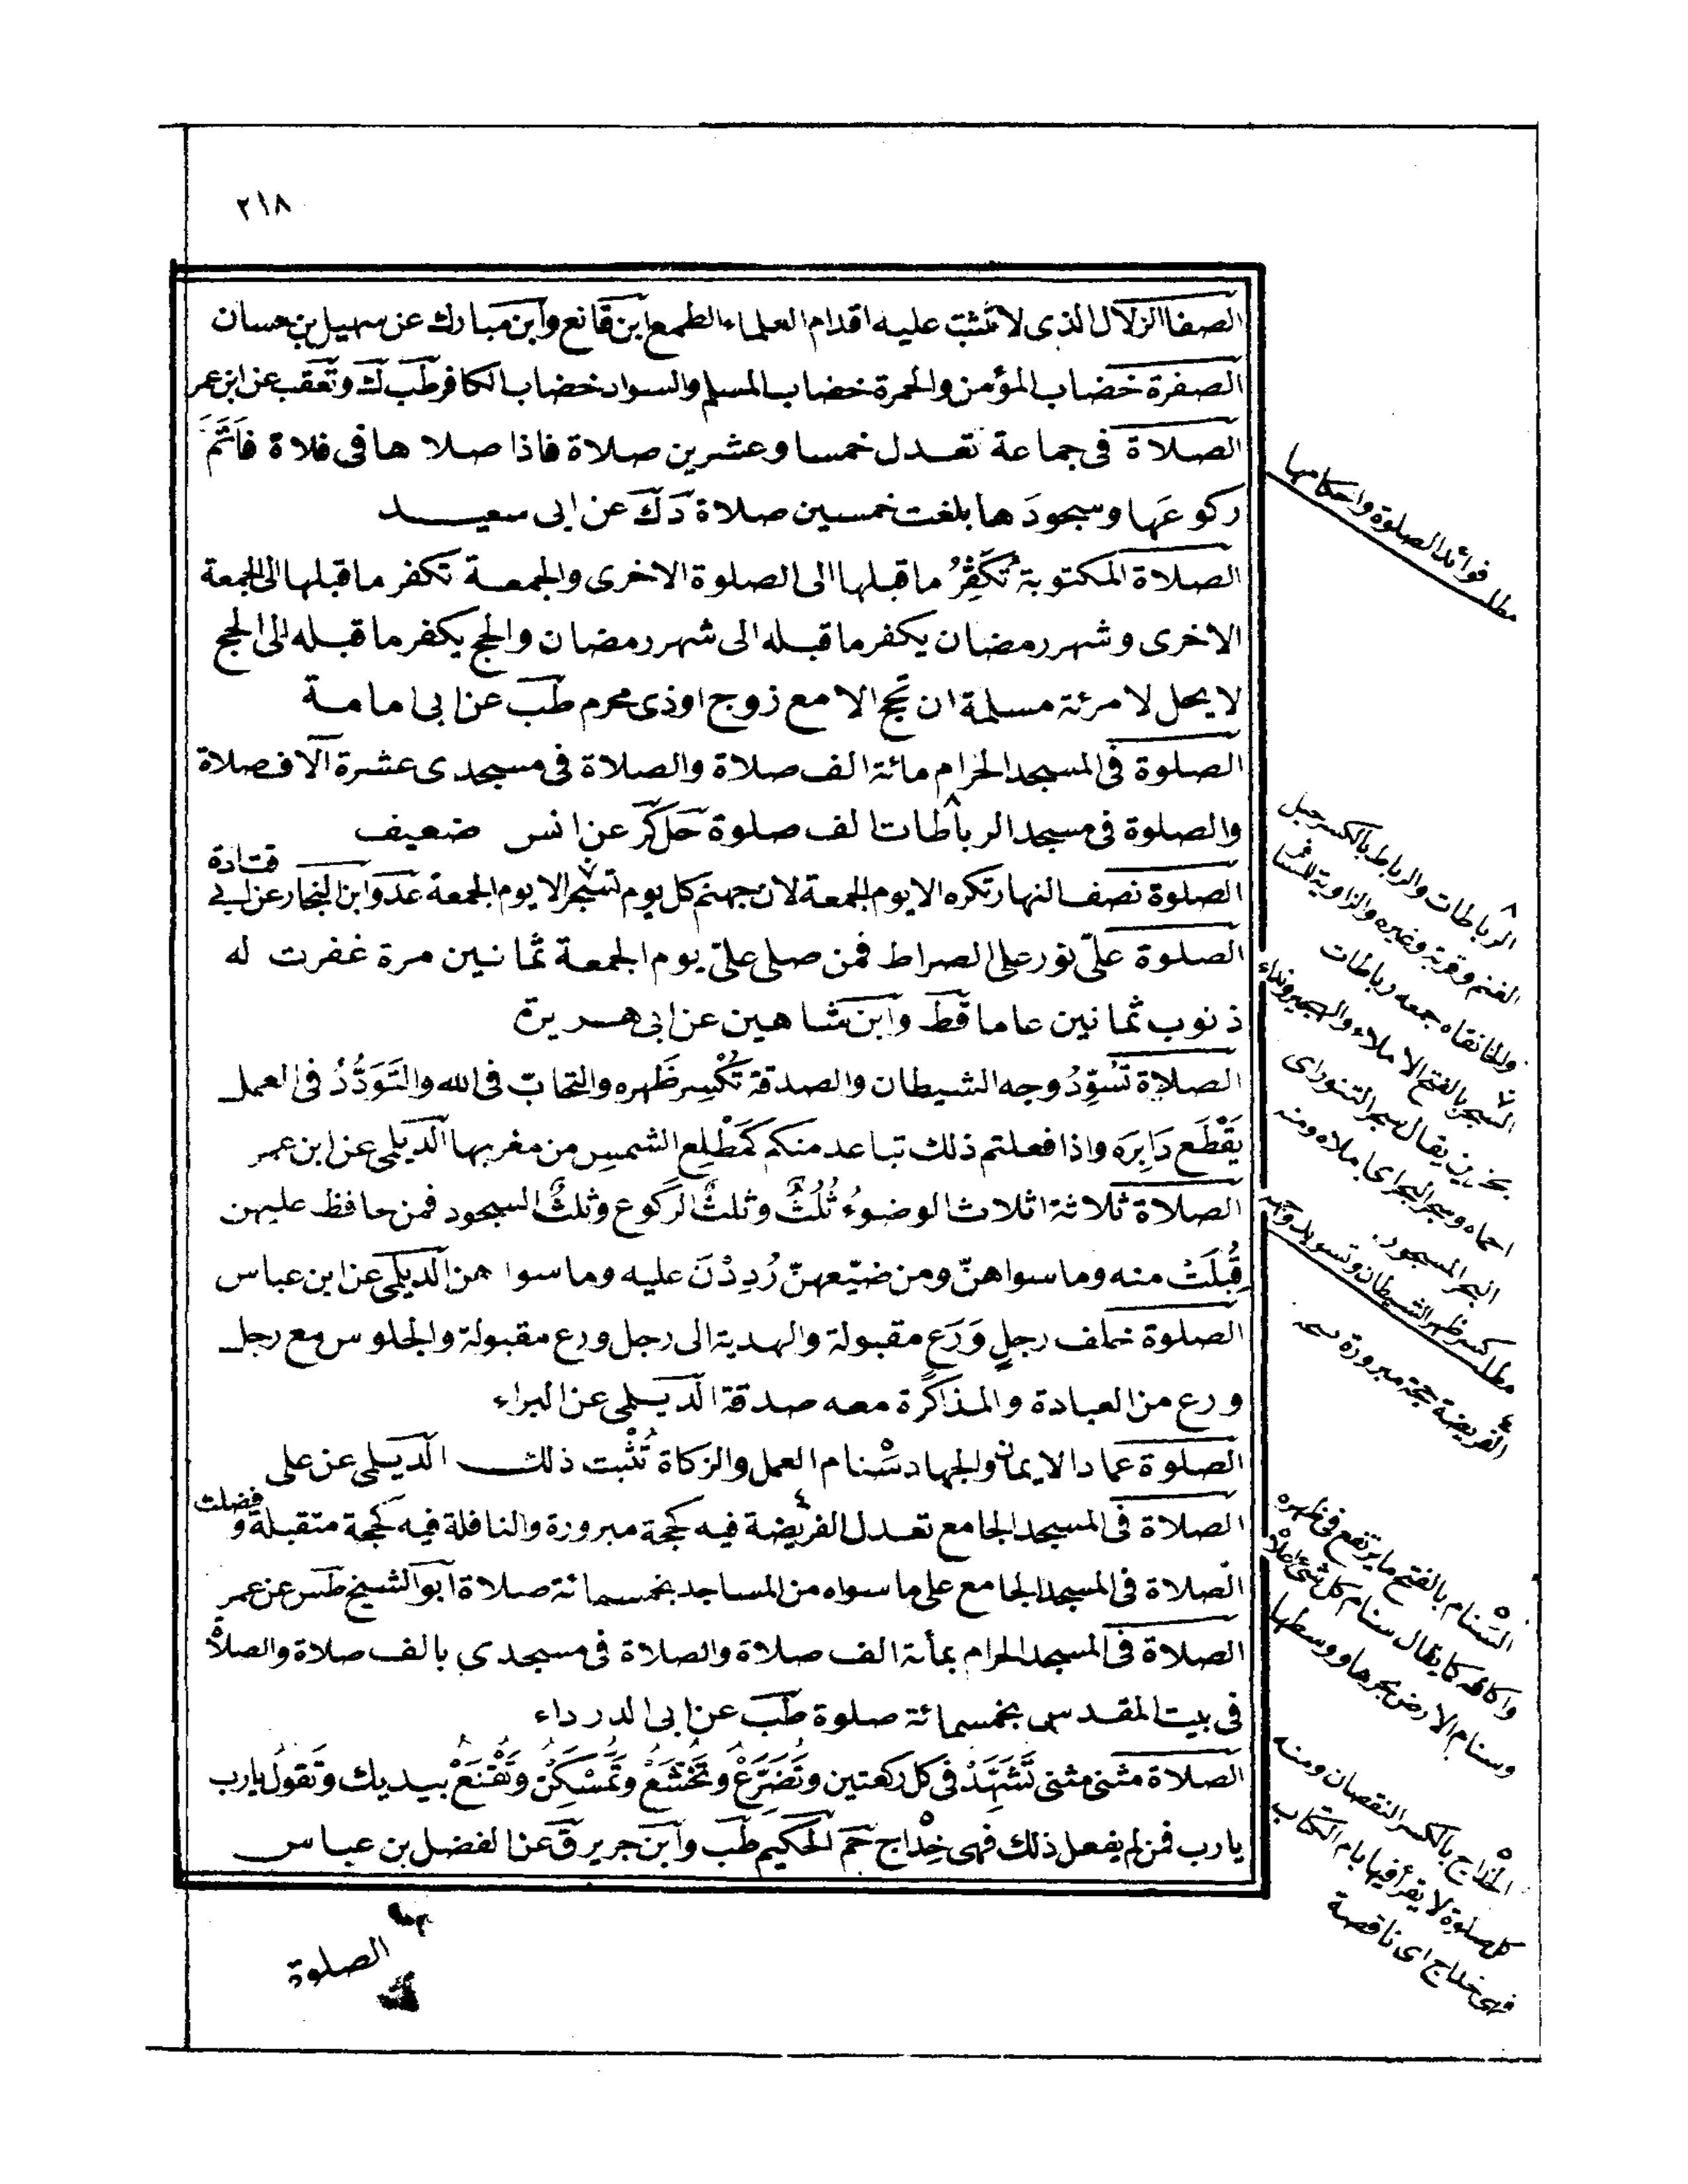 ٢١٨
الصفا الزلال الذى لا تثبت عليه اقدام العلماء الطمع ابن قانع وابن مبارك عن سهيل بن حسان
الصفرة خضاب المؤمن والحمرة خضاب المسلم والسواد خضاب الكافر طب ك وتعقب عن ابن عمر
الصلاة فى جماعة تعدل خمسا وعشرين صلاة فاذا صلاها فى فلاة فَاَتَمَّ
ركوعَها وسجودَها بلغت خمسين صلاة د ك عن ابى سعيد
الصلاة المكتوبة تُكَفِّرُ ما قبلها الى الصلوة الاخرى والجمعة تكفر ما قبلها الى الجمعة
الاخرى وشهر رمضان يكفر ما قبله الى شهر رمضان والحج يكفر ما قبله الى الحج
لا يحل لامرئة مسلمة ان تحج الا مع زوج او ذى محرم طب عن ابى امامة
الصلوة فى المسجد الحرام مائة الف صلاة والصلاة فى مسجدى عشرة آلاف صلاة
والصلوة فى مسجد الرباطات الف صلوة حل كر عن انس ضعيف
الصلوة نصف النهار تكره الا يوم الجمعة لان جهنم كل يوم تسجر الا يوم الجمعة عد وابن النجار عن ابى قتادة
الصلوة علىّ نور على الصراط فمن صلى علىّ يوم الجمعة ثمانين مرة غفرت له
ذنوب ثمانين عاما قط وابن شاهين عن ابى هريرة
الصلاة تُسَوِّدُ وجه الشيطان والصدقة تُكْسِر ظهره والتحابّ فى الله والتَوَدُّدُ فى العمل
يَقْطَع دَابِرَه واذا فعلتم ذلك تباعد منكم كَمَطْلِع الشمس من مغربها الديلمى عن ابن عمر
الصلاة ثلاثة اثلاث الوضوءُ ثُلُثٌ وثلثٌ الركوع وثلثٌ السجود فمن حافظ عليهن
قُبِلَتْ منه وما سواهنّ ومن ضيّعهنّ رُدِدْنَ عليه وما سواهن الديلمى عن ابن عباس
الصلوة خلف رجلٍ وَرَعٍ مقبولة والهدية الى رجل ورع مقبولة والجلوس مع رجل
ورع من العبادة والمذاكرة معه صدقة الديلمى عن البراء
الصلوة عماد الايمان والجهاد سَنام العمل والزكاة تُثْبت ذلك الديلمى عن على
الصلاة فى المسجد الجامع تعدل الفريضة فيه كحجة مبرورة والنافلة فيه كحجة متقبلة وفضلت
الصلاة فى المسجد الجامع على ما سواه من المساجد بخمسمائة صلاة ابو الشيخ طس عن عمر
الصلاة فى المسجد الحرام بمأة الف صلاة والصلاة فى مسجدي بالف صلاة والصلاة
فى بيت المقدس بخمسمائة صلوة طب عن ابى الدرداء
الصلاة مثنى مثنى تَشَهُّدْ فى كل ركعتين وتَضَرَّعْ وتَخَشَّعْ وتَمَسْكَنْ وتُقْنِعْ بيديك وتقولُ يارب
يارب فمن لم يفعل ذلك فهى خِدَاج حم الحكيم طب وابن جرير ق عن الفضل بن عباس
الصلوة
مطلب فوائد الصلوة واحكامها
الرباطات والرباط بالكسر حبل
الغنم وقربة وغيره والزاوية للسا
والخانقاه جمعه رباطات
السجر بالفتح الاملاء والسجير وقداء
يقال سجر التنور اى
احماه وسجر البحر اى املاه ومنه
البحر المسجور.
مطلب كسر ظهر الشيطان وتسويد وجهه
الفريضة حجة مبرورة نسخه
السَنام بالفتح ما يرتفع فى ظهره
كما يقال سنام كل شئ اعلاه
وسنام الارض نحرها ووسطها
الخداج بالكسر النقصان ومنه
كل صلوة لا يقرأ فيها بام الكتاب
فهى خداج اى ناقصة